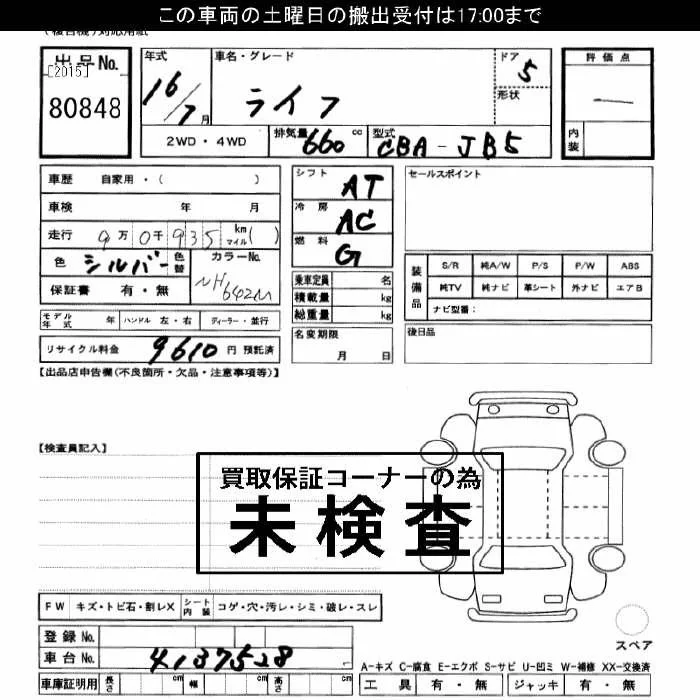 この車両の土曜日の搬出受付は17:00まで
(複合機)対応用紙
出品No.
[2015]
80848
年式
16/7月
車名・グレード
ライフ
ドア
5
形状
評価点
内装
2WD・4WD
排気量 660 cc
型式 CBA-JB5
車歴 自家用・( )
車検 年 月
走行 9万0千935 km マイル( )
色 シルバー 色替
カラーNo.
NH642M
保証書 有・無
シフト
AT
冷房
AC
燃料
G
乗車定員 名
積載量 kg
総重量 kg
セールスポイント
装備品
S/R 純A/W P/S P/W ABS
純TV 純ナビ 革シート 外ナビ エアB
ナビ型番:
モデル年式 年 ハンドル 左・右 ディーラー・並行
名変期限
月 日
後日品
リサイクル料金 9610 円 預託済
【出品店申告欄(不良箇所・欠品・注意事項等)】
【検査員記入】
買取保証コーナーの為
未検査
FW キズ・トビ石・割レX シート内装 コゲ・穴・汚レ・シミ・破レ・スレ
スペア
登録No.
車台No. 4137528
A-キズ C-腐食 E-エクボ S-サビ U-凹ミ W-補修 XX-交換済
車庫証明用 長さ cm 幅 cm 高さ cm
工具 有・無 ジャッキ 有・無